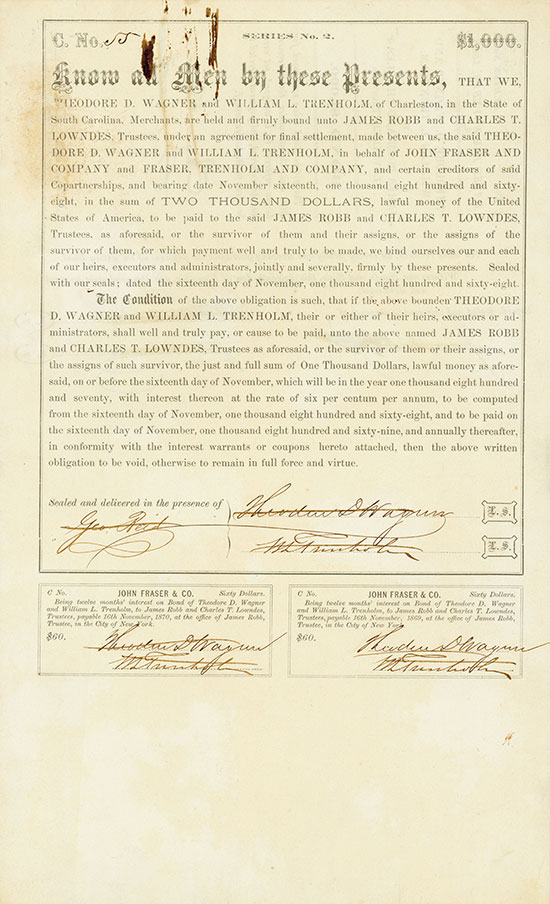 C. No. 55 SERIES No. 2. $1,000.
Know all Men by these Presents, THAT WE,
THEODORE D. WAGNER and WILLIAM L. TRENHOLM, of Charleston, in the State of
South Carolina, Merchants, are held and firmly bound unto JAMES ROBB and CHARLES T.
LOWNDES, Trustees, under an agreement for final settlement, made between us, the said THEO-
DORE D. WAGNER and WILLIAM L. TRENHOLM, in behalf of JOHN FRASER AND
COMPANY and FRASER, TRENHOLM AND COMPANY, and certain creditors of said
Copartnerships, and bearing date November sixteenth, one thousand eight hundred and sixty-
eight, in the sum of TWO THOUSAND DOLLARS, lawful money of the United
States of America, to be paid to the said JAMES ROBB and CHARLES T. LOWNDES,
Trustees, as aforesaid, or the survivor of them and their assigns, or the assigns of the
survivor of them, for which payment well and truly to be made, we bind ourselves our and each
of our heirs, executors and administrators, jointly and severally, firmly by these presents. Sealed
with our seals; dated the sixteenth day of November, one thousand eight hundred and sixty-eight.
The Condition of the above obligation is such, that if the above bounden THEODORE
D. WAGNER and WILLIAM L. TRENHOLM, their or either of their heirs, executors or ad-
ministrators, shall well and truly pay, or cause to be paid, unto the above named JAMES ROBB
and CHARLES T. LOWNDES, Trustees as aforesaid, or the survivor of them or their assigns, or
the assigns of such survivor, the just and full sum of One Thousand Dollars, lawful money as afore-
said, on or before the sixteenth day of November, which will be in the year one thousand eight hundred
and seventy, with interest thereon at the rate of six per centum per annum, to be computed
from the sixteenth day of November, one thousand eight hundred and sixty-eight, and to be paid on
the sixteenth day of November, one thousand eight hundred and sixty-nine, and annually thereafter,
in conformity with the interest warrants or coupons hereto attached, then the above written
obligation to be void, otherwise to remain in full force and virtue.
Sealed and delivered in the presence of
Geo Reid
Theodore D Wagner L.S.
W L Trenholm L.S.
C No. JOHN FRASER & CO. Sixty Dollars.
Being twelve months' interest on Bond of Theodore D. Wagner
and William L. Trenholm, to James Robb and Charles T. Lowndes,
Trustees, payable 16th November, 1870, at the office of James Robb,
Trustee, in the City of New York.
$60. Theodore D Wagner
W L Trenholm
C No. JOHN FRASER & CO. Sixty Dollars.
Being twelve months' interest on Bond of Theodore D. Wagner
and William L. Trenholm, to James Robb and Charles T. Lowndes,
Trustees, payable 16th November, 1869, at the office of James Robb,
Trustee, in the City of New York.
$60. Theodore D Wagner
W L Trenholm